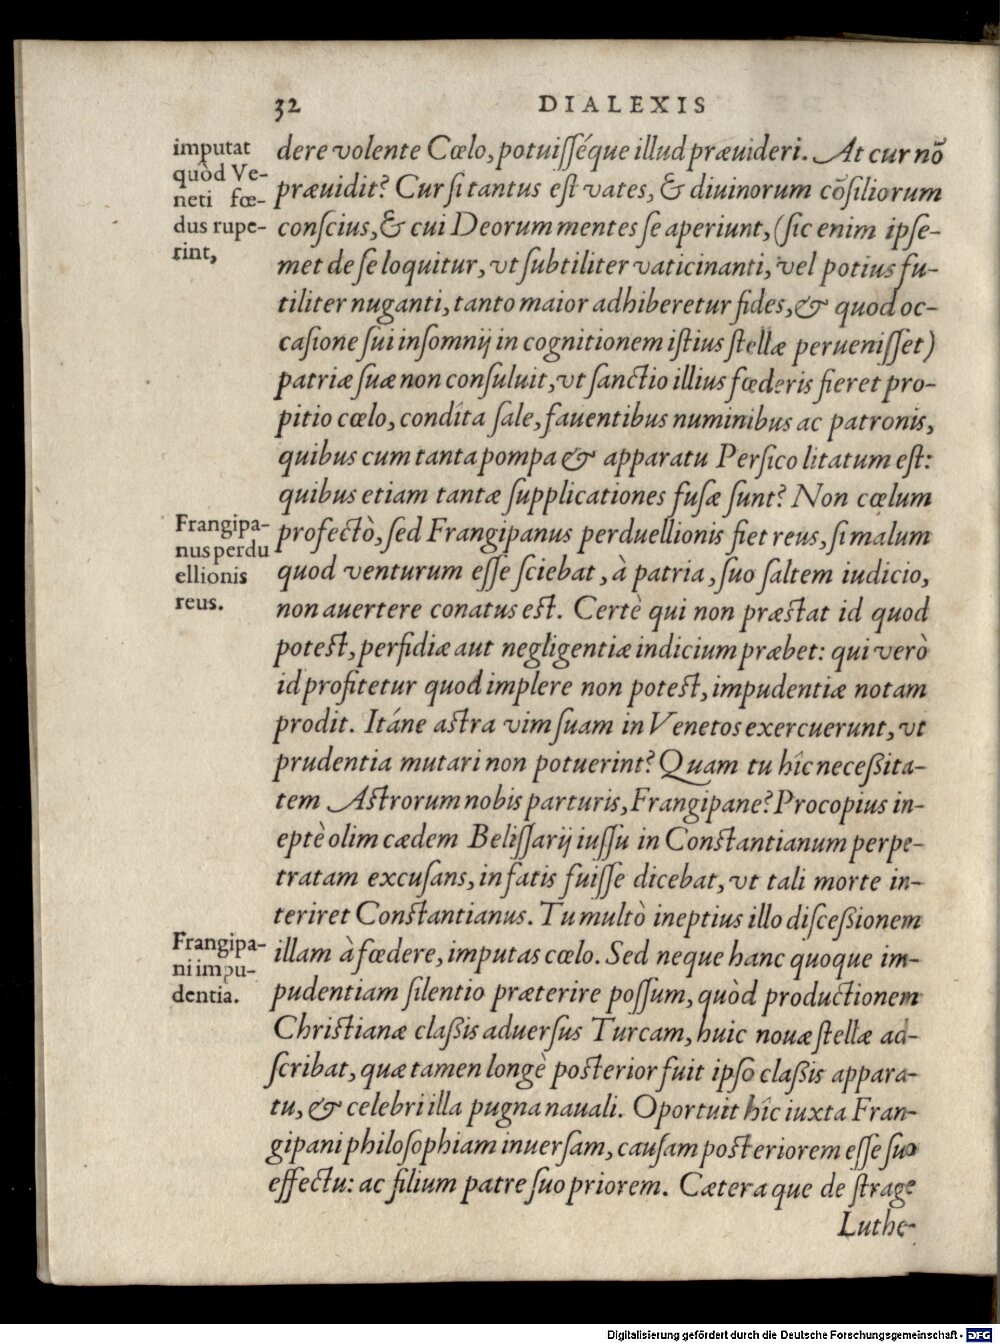 32 DIALEXIS
imputat
quòd Ve-
neti fœ-
dus rupe-
rint,
dere volente Cœlo, potuiſſéque illud præuideri. At cur nõ
præuidit? Cur ſi tantus eſt vates, & diuinorum cõſiliorum
conſcius, & cui Deorum mentes ſe aperiunt, (ſic enim ipſe-
met de ſe loquitur, vt ſubtiliter vaticinanti, vel potius fu-
tiliter nuganti, tanto maior adhiberetur fides, & quod oc-
caſione ſui inſomnij in cognitionem iſtius ſtellæ perueniſſet)
patriæ ſuæ non conſuluit, vt ſanctio illius fœderis fieret pro-
pitio cœlo, condîta ſale, fauentibus numinibus ac patronis,
quibus cum tanta pompa & apparatu Perſico litatum eſt:
quibus etiam tantæ ſupplicationes fuſæ ſunt? Non cœlum
Frangipa-
nus perdu
ellionis
reus.
profectò, ſed Frangipanus perduellionis fiet reus, ſi malum
quod venturum eſſe ſciebat, à patria, ſuo ſaltem iudicio,
non auertere conatus eſt. Certè qui non præſtat id quod
poteſt, perfidiæ aut negligentiæ indicium præbet: qui verò
id profitetur quod implere non poteſt, impudentiæ notam
prodit. Itáne aſtra vim ſuam in Venetos exercuerunt, vt
prudentia mutari non potuerint? Quam tu hîc neceßita-
tem Aſtrorum nobis parturis, Frangipane? Procopius in-
eptè olim cædem Beliſſarij iuſſu in Conſtantianum perpe-
tratam excuſans, in fatis fuiſſe dicebat, vt tali morte in-
teriret Conſtantianus. Tu multò ineptius illo diſceßionem
Frangipa-
ni impu-
dentia.
illam à fœdere, imputas cœlo. Sed neque hanc quoque im-
pudentiam ſilentio præterire poſſum, quòd productionem
Chriſtianæ claßis aduerſus Turcam, huic nouæ ſtellæ ad-
ſcribat, quæ tamen longè poſterior fuit ipſo claßis appara-
tu, & celebri illa pugna nauali. Oportuit hîc iuxta Fran-
gipani philoſophiam inuerſam, cauſam poſteriorem eſſe ſuo
effectu: ac filium patre ſuo priorem. Cætera que de ſtrage
Luthe-
Digitalisierung gefördert durch die Deutsche Forschungsgemeinschaft - DFG